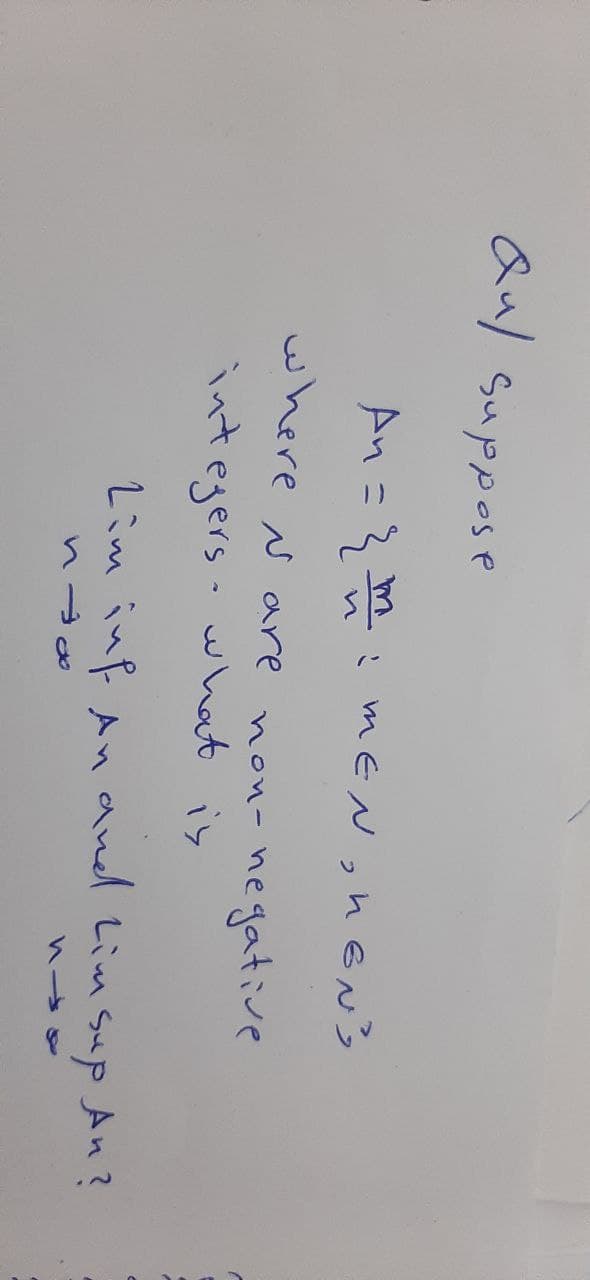 Qu/ Suppose
An = { m/n : m ∈ N, n ∈ N }
where N are non-negative
integers. what is
Lim inf An and Lim sup An?
n→∞ n→∞